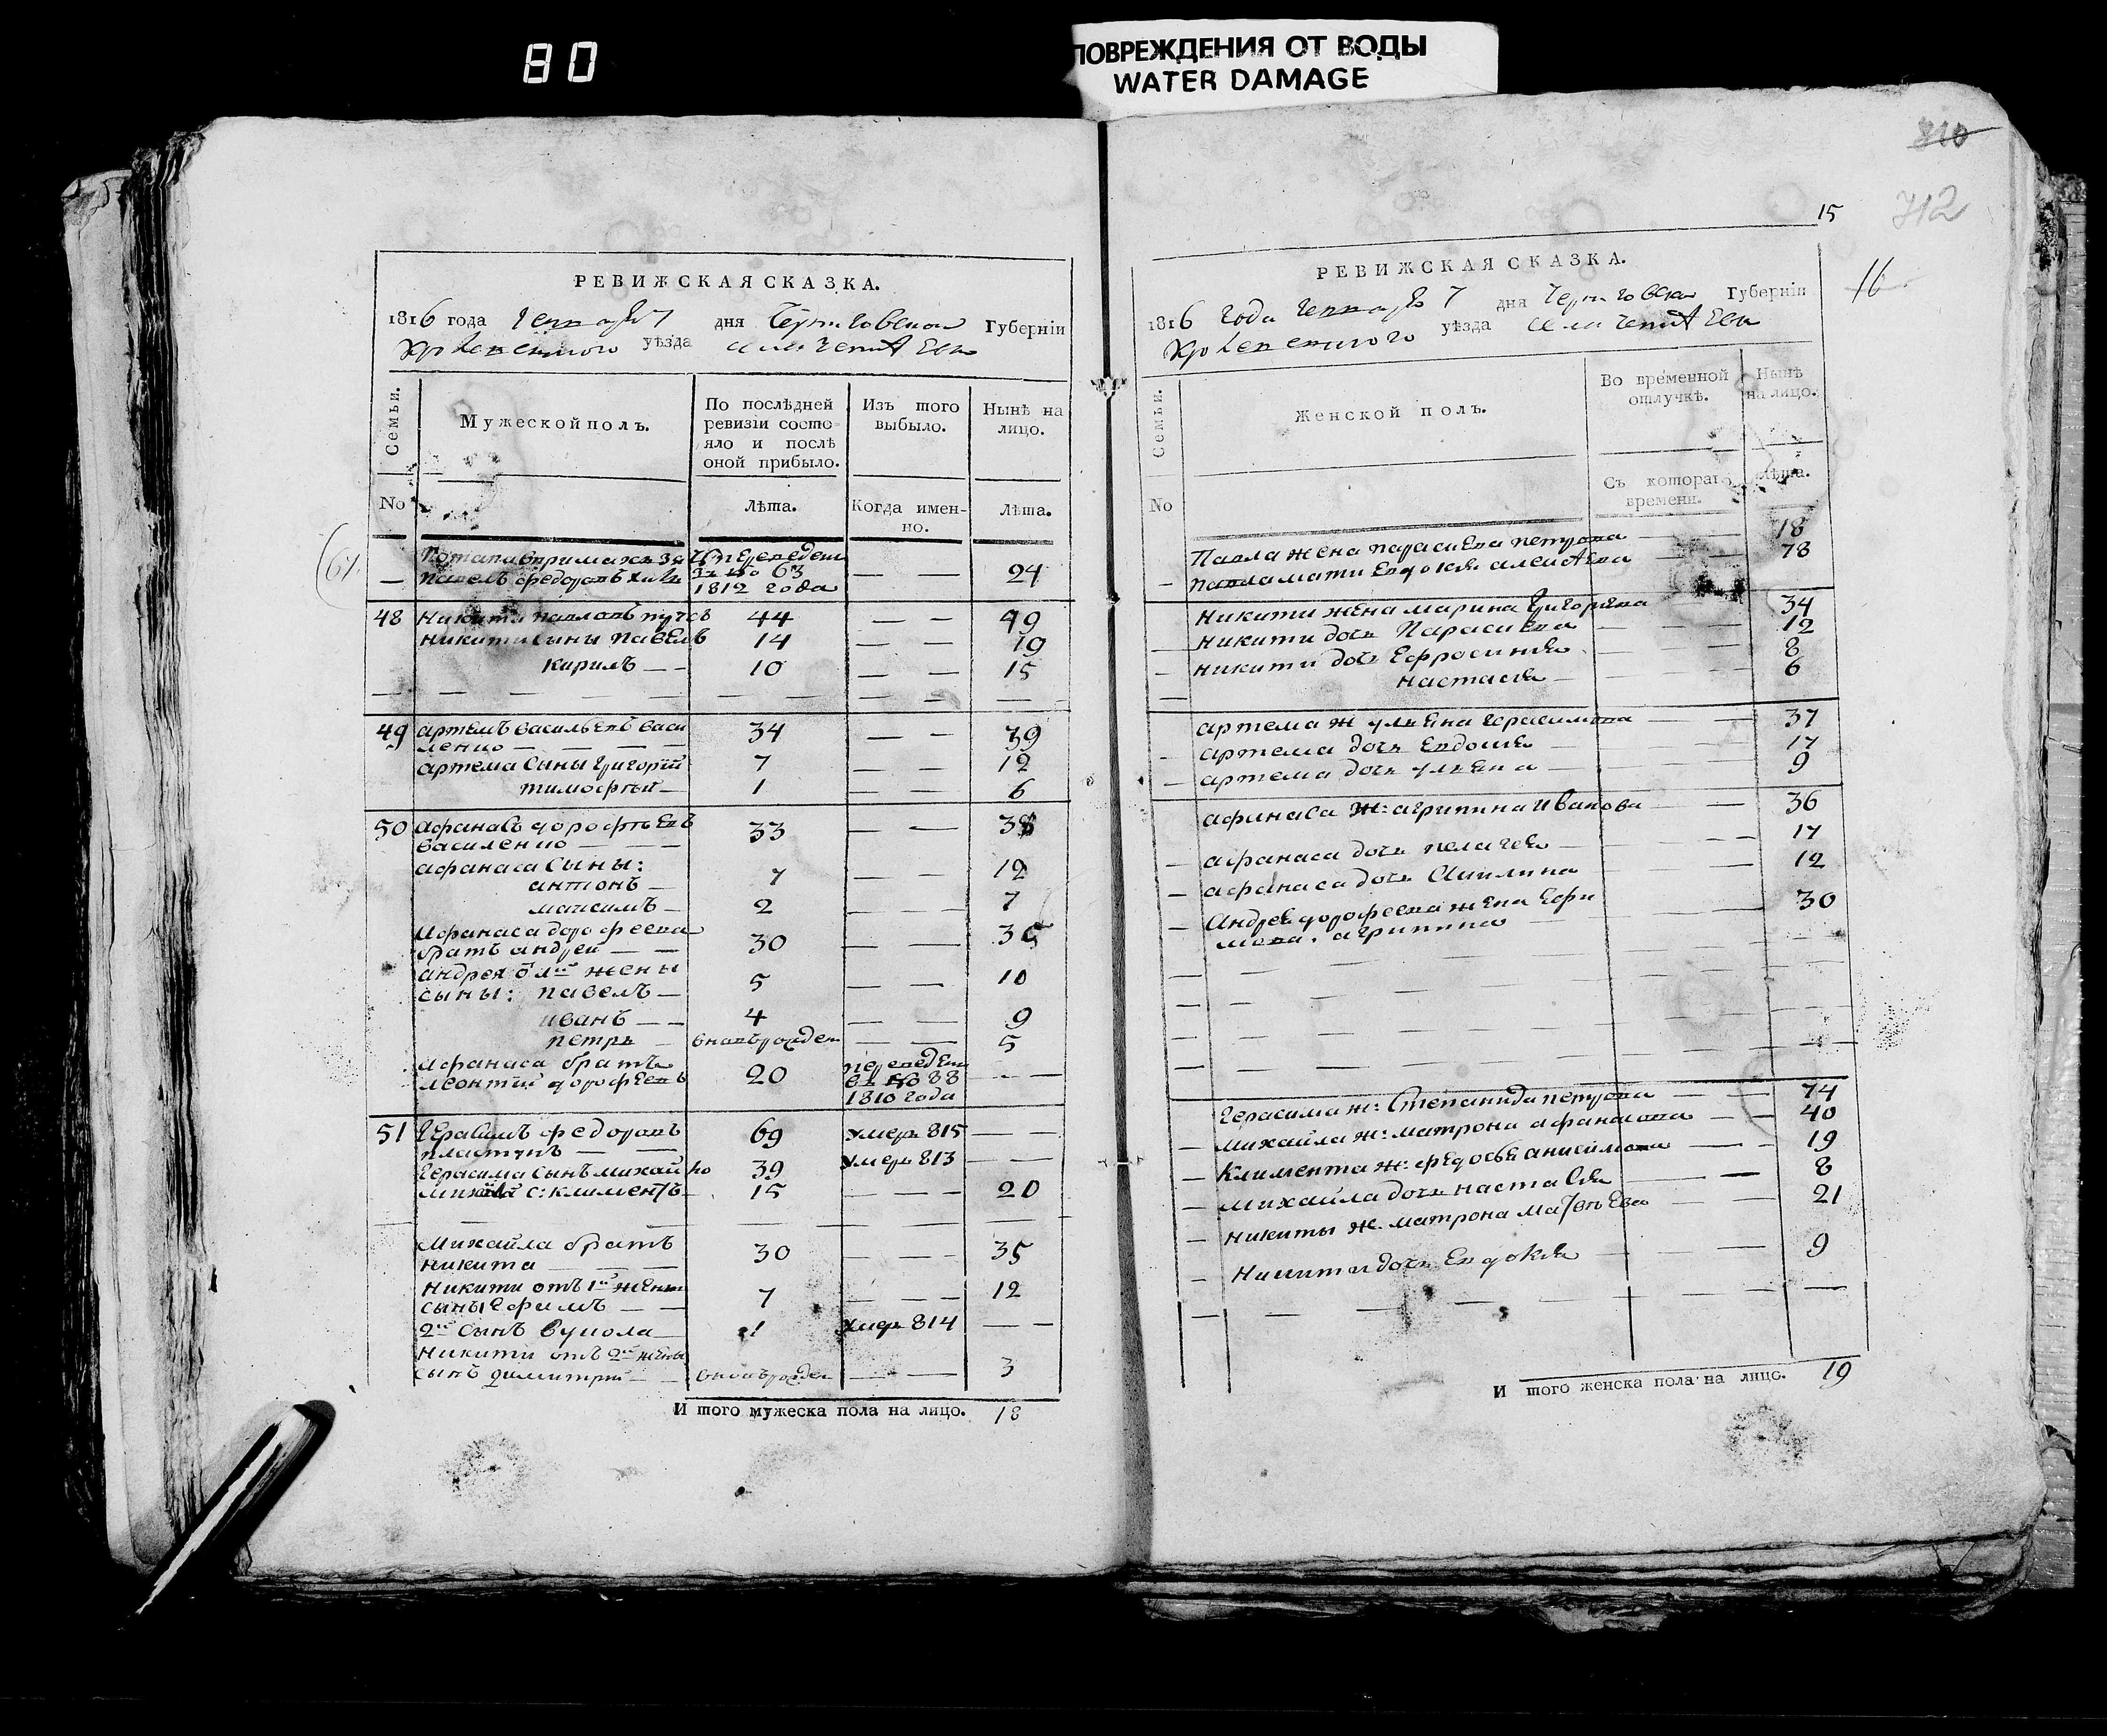 80
ПОВРЕЖДЕНИЯ ОТ ВОДЫ
WATER DAMAGE
РЕВИЖСКАЯ СКАЗКА.
1816 года генваря 7 дня Черниговской Губерніи
уѣзда села
Семьи.
Мужеской полъ.
По послѣдней ревизіи состо-
яло и послѣ оной прибыло.
Изъ того выбыло.
Нынѣ на лицо.
No
Лѣта.
Когда имен-
но.
Лѣта.
61
Переведен
Павелъ федоровъ No 63 — — 24
1812 года
48 Никита павловъ 44 — — 49
Никити сыны павелъ 14 — — 19
кирилъ — — 10 — — 15
49 артемъ васильевъ васи
ленко — — — 34 — — 39
артема сыны григорій 7 — — 12
тимофѣй — 1 — — 6
50 афанасъ дорофѣевъ
василенко — — — 33 — — 38
афанаса сыны:
антонъ — 7 — — 12
максимъ — 2 — — 7
Афанаса дорофеева
братъ андреи — — 30 — — 35
андрея жены
сыны: павелъ — 5 — — 10
иванъ — — 4 — — 9
петръ — вновьрожден — — 5
Афанаса братъ
леонтий дорофѣевъ 20 переведен
въ No 88 — —
1810 года
51 Герасимъ федоровъ
пластунъ — — 69 умеръ 815 — —
Герасима сынъ михайло 39 умеръ 813 — —
михайла с: климентъ 15 — — — 20
Михайла братъ
никита — — — 30 — — — 35
Никити отъ 1й жены
сыны Ефимъ — — 7 — — — 12
2й сынъ вукола — 1 умеръ 814 — —
Никити отъ 2й жены
сынъ димитрий — — вновьрожден — — 3
И того мужеска пола на лицо. 18
810
712
15
16
РЕВИЖСКАЯ СКАЗКА.
1816 года генваря 7 дня Черниговской Губерніи
уѣзда села
Семьи.
Женской полъ.
Во временной
отлучкѣ.
Нынѣ
на лицо.
No
Съ котораго
времени.
Лѣта.
Павла жена параскева петрова — — 18
павла мати Евдокия алексѣева — — 78
Никити жена марина григорева 34
никити дочь Параскева — — — 12
никити дочь Ефросиния — — — 8
настасия — — — 6
артема ж улияна герасимова — — 37
артема дочь Евдокия — — — 17
артема дочь улияна — — — 9
афанаса ж: агрипина иванова — — 36
афанаса дочь пелагея — — — 17
афанаса дочь Акилина — — 12
Андрея дорофеева жена Ефи
мова. агрипина — — 30
Герасима ж: Степанида петрова — — 74
Михайла ж: матрона афанасова — — 40
Климента ж: федосья анисимова — — 19
Михайла дочь настасия — — 8
никиты ж. матрона матвѣева — — 21
Никити дочь Евдокия — — 9
И того женска пола на лицо. 19